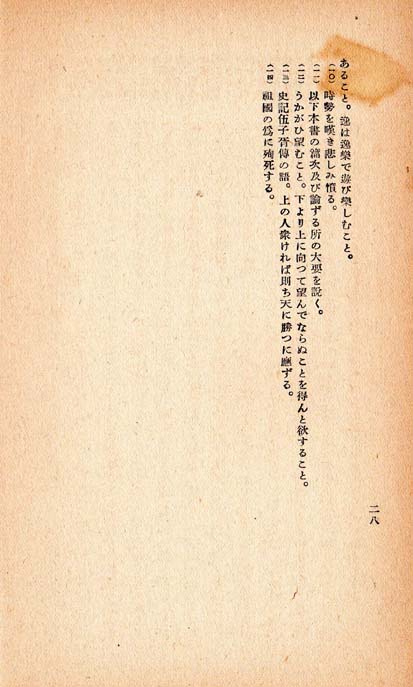 あること。逸は逸樂で遊び樂しむこと。
（一〇）時勢を嘆き悲しみ憤る。
（一一）以下本書の篇次及び論ずる所の大要を說く。
（一二）うかがひ望むこと。下より上に向つて望んでならぬことを得んと欲すること。
（一三）史記伍子胥傳の語。上の人衆ければ則ち天に勝つに應ずる。
（一四）祖國の爲に殉死する。
二八